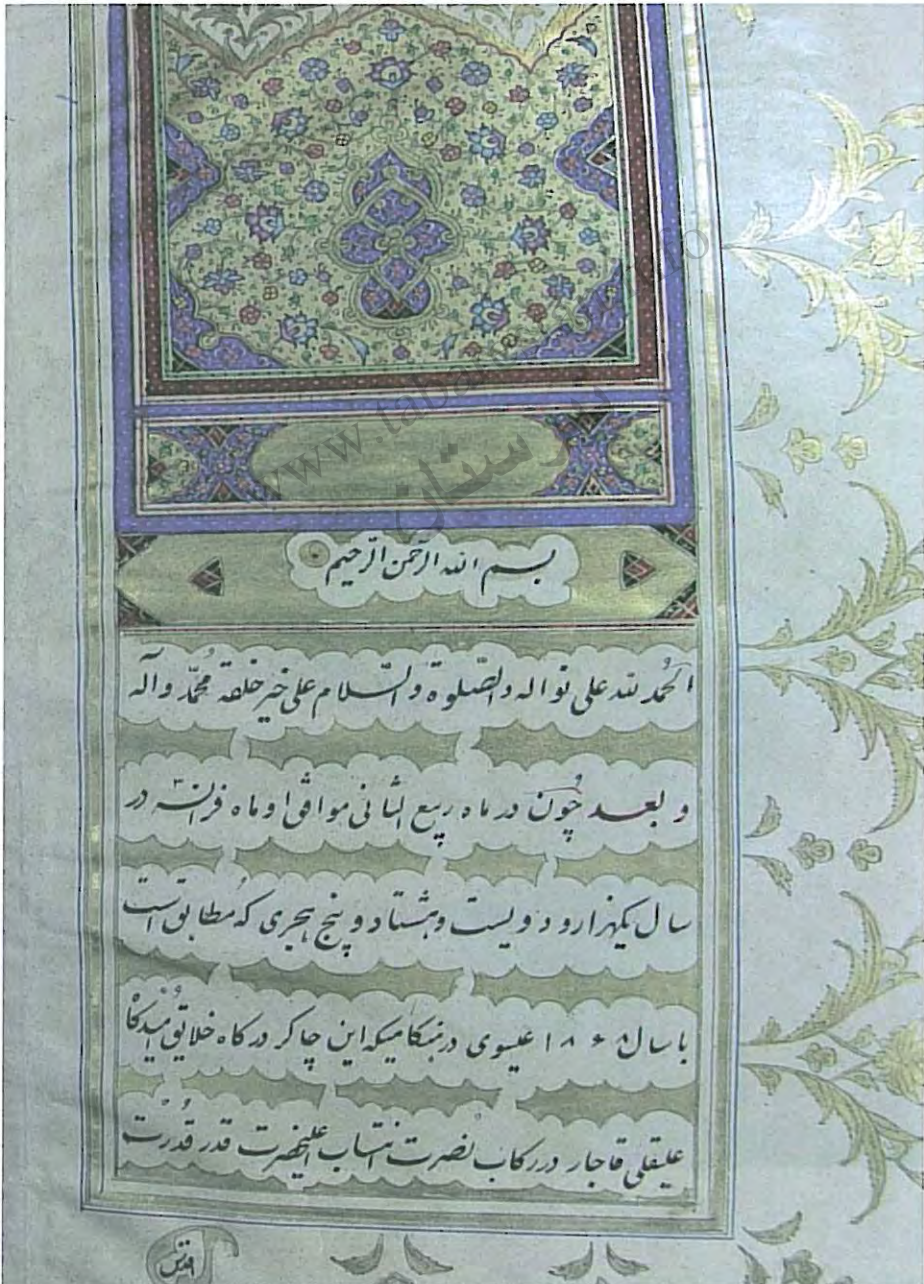 بسم الله الرحمن الرحیم
الحمد لله علی نواله والصلوة والسلام علی خیر خلقه محمد وآله
و بعد چون در ماه ربیع الثانی موافق اوت ماه فرانسه در
سال یکهزار و دویست و هشتاد و پنج هجری که مطابق است
با سال ۱۸۶۸ عیسوی در هنگامیکه این چاکر درگاه خلایق امیدگاه
علیقلی قاجار در رکاب نصرت انتساب اعلیحضرت قدر قدرت
اقدس